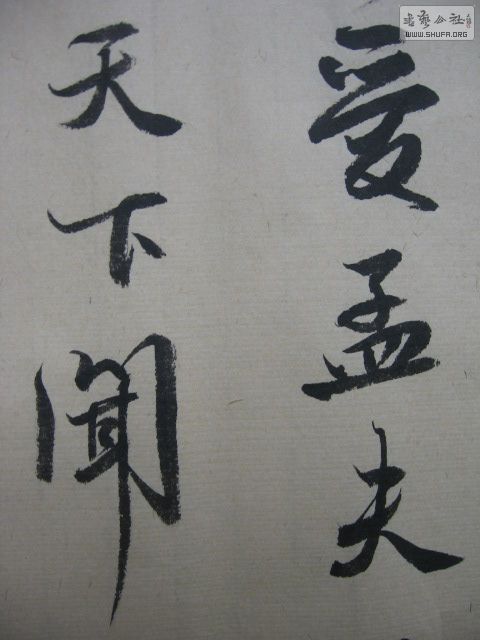 爱孟夫
天下聞
書藝公社
WWW.SHUFA.ORG